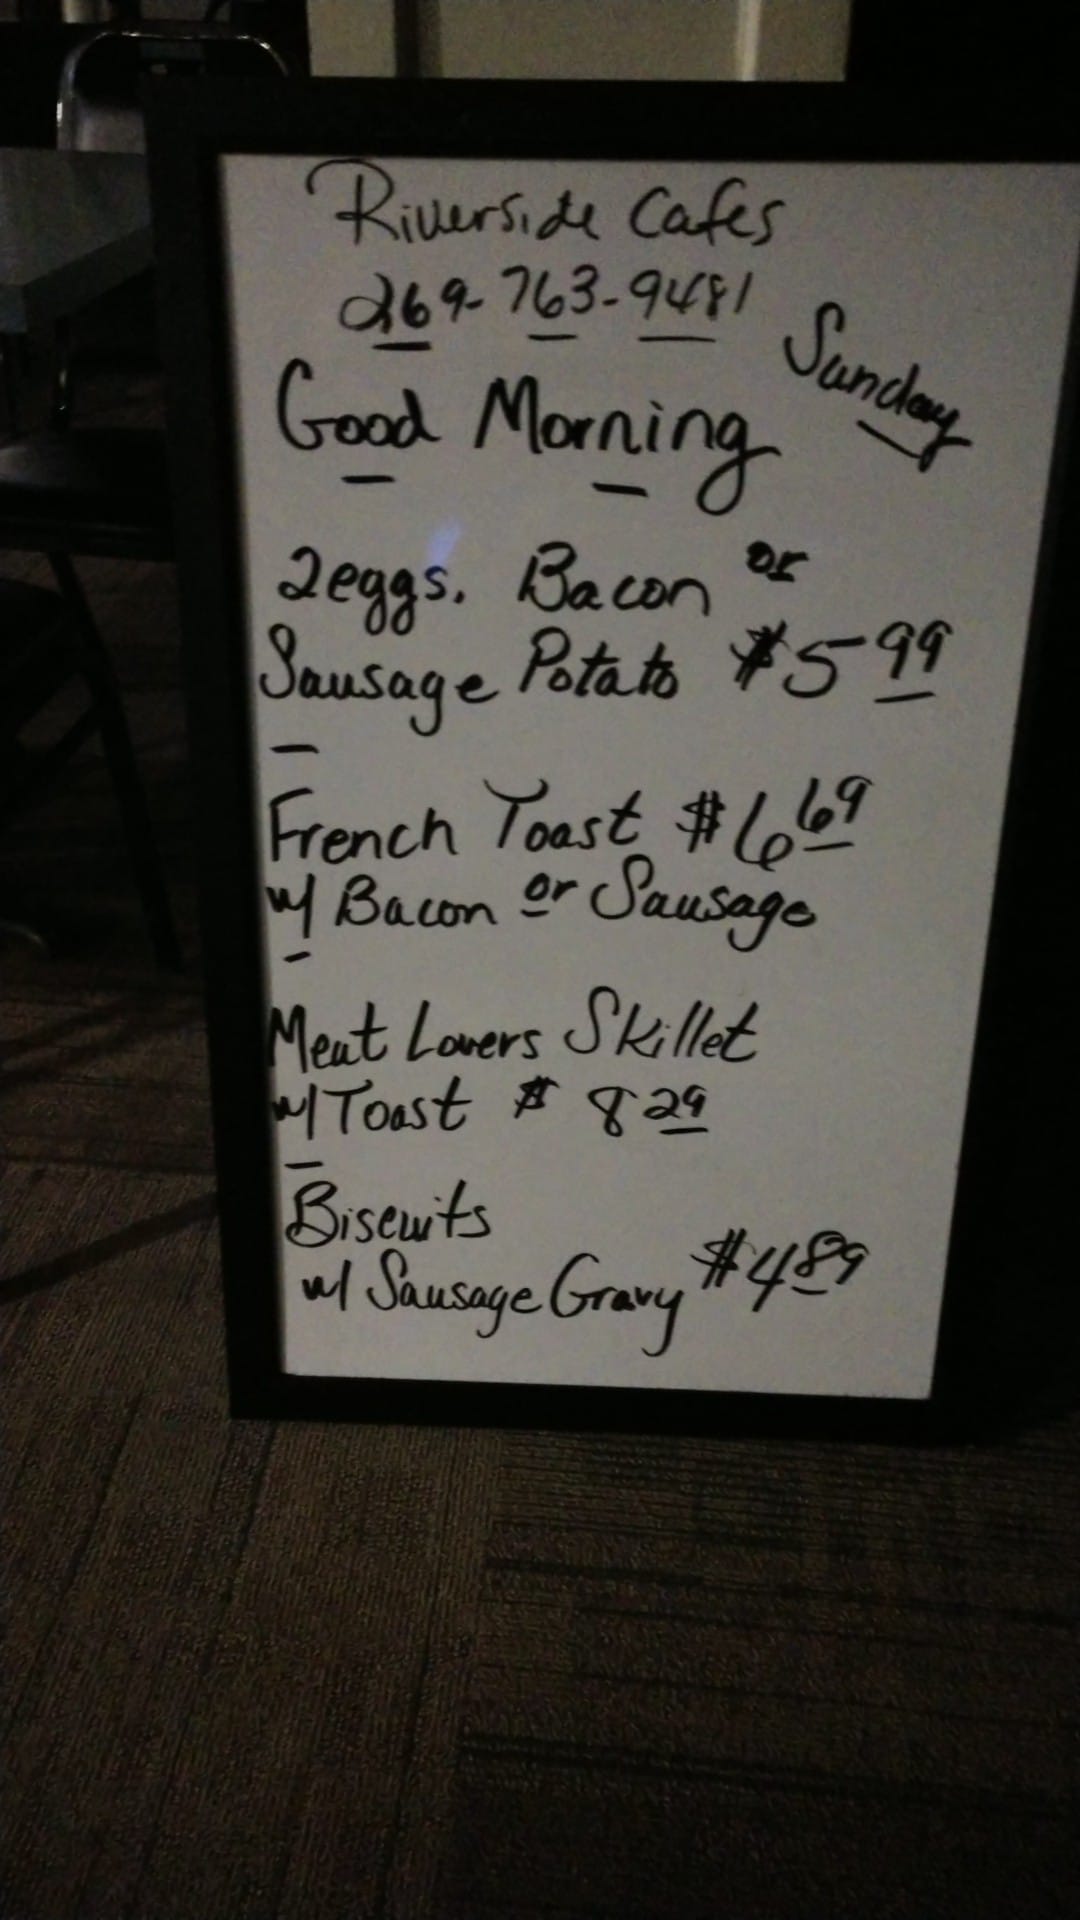 Riverside Cafes
269-763-9481
Sunday
Good Morning
2eggs. Bacon or
Sausage Potato $5 99
French Toast $6 69
w/ Bacon or Sausage
Meat Lovers Skillet
w/ Toast $ 8 29
Biscuits
w/ Sausage Gravy $4 89